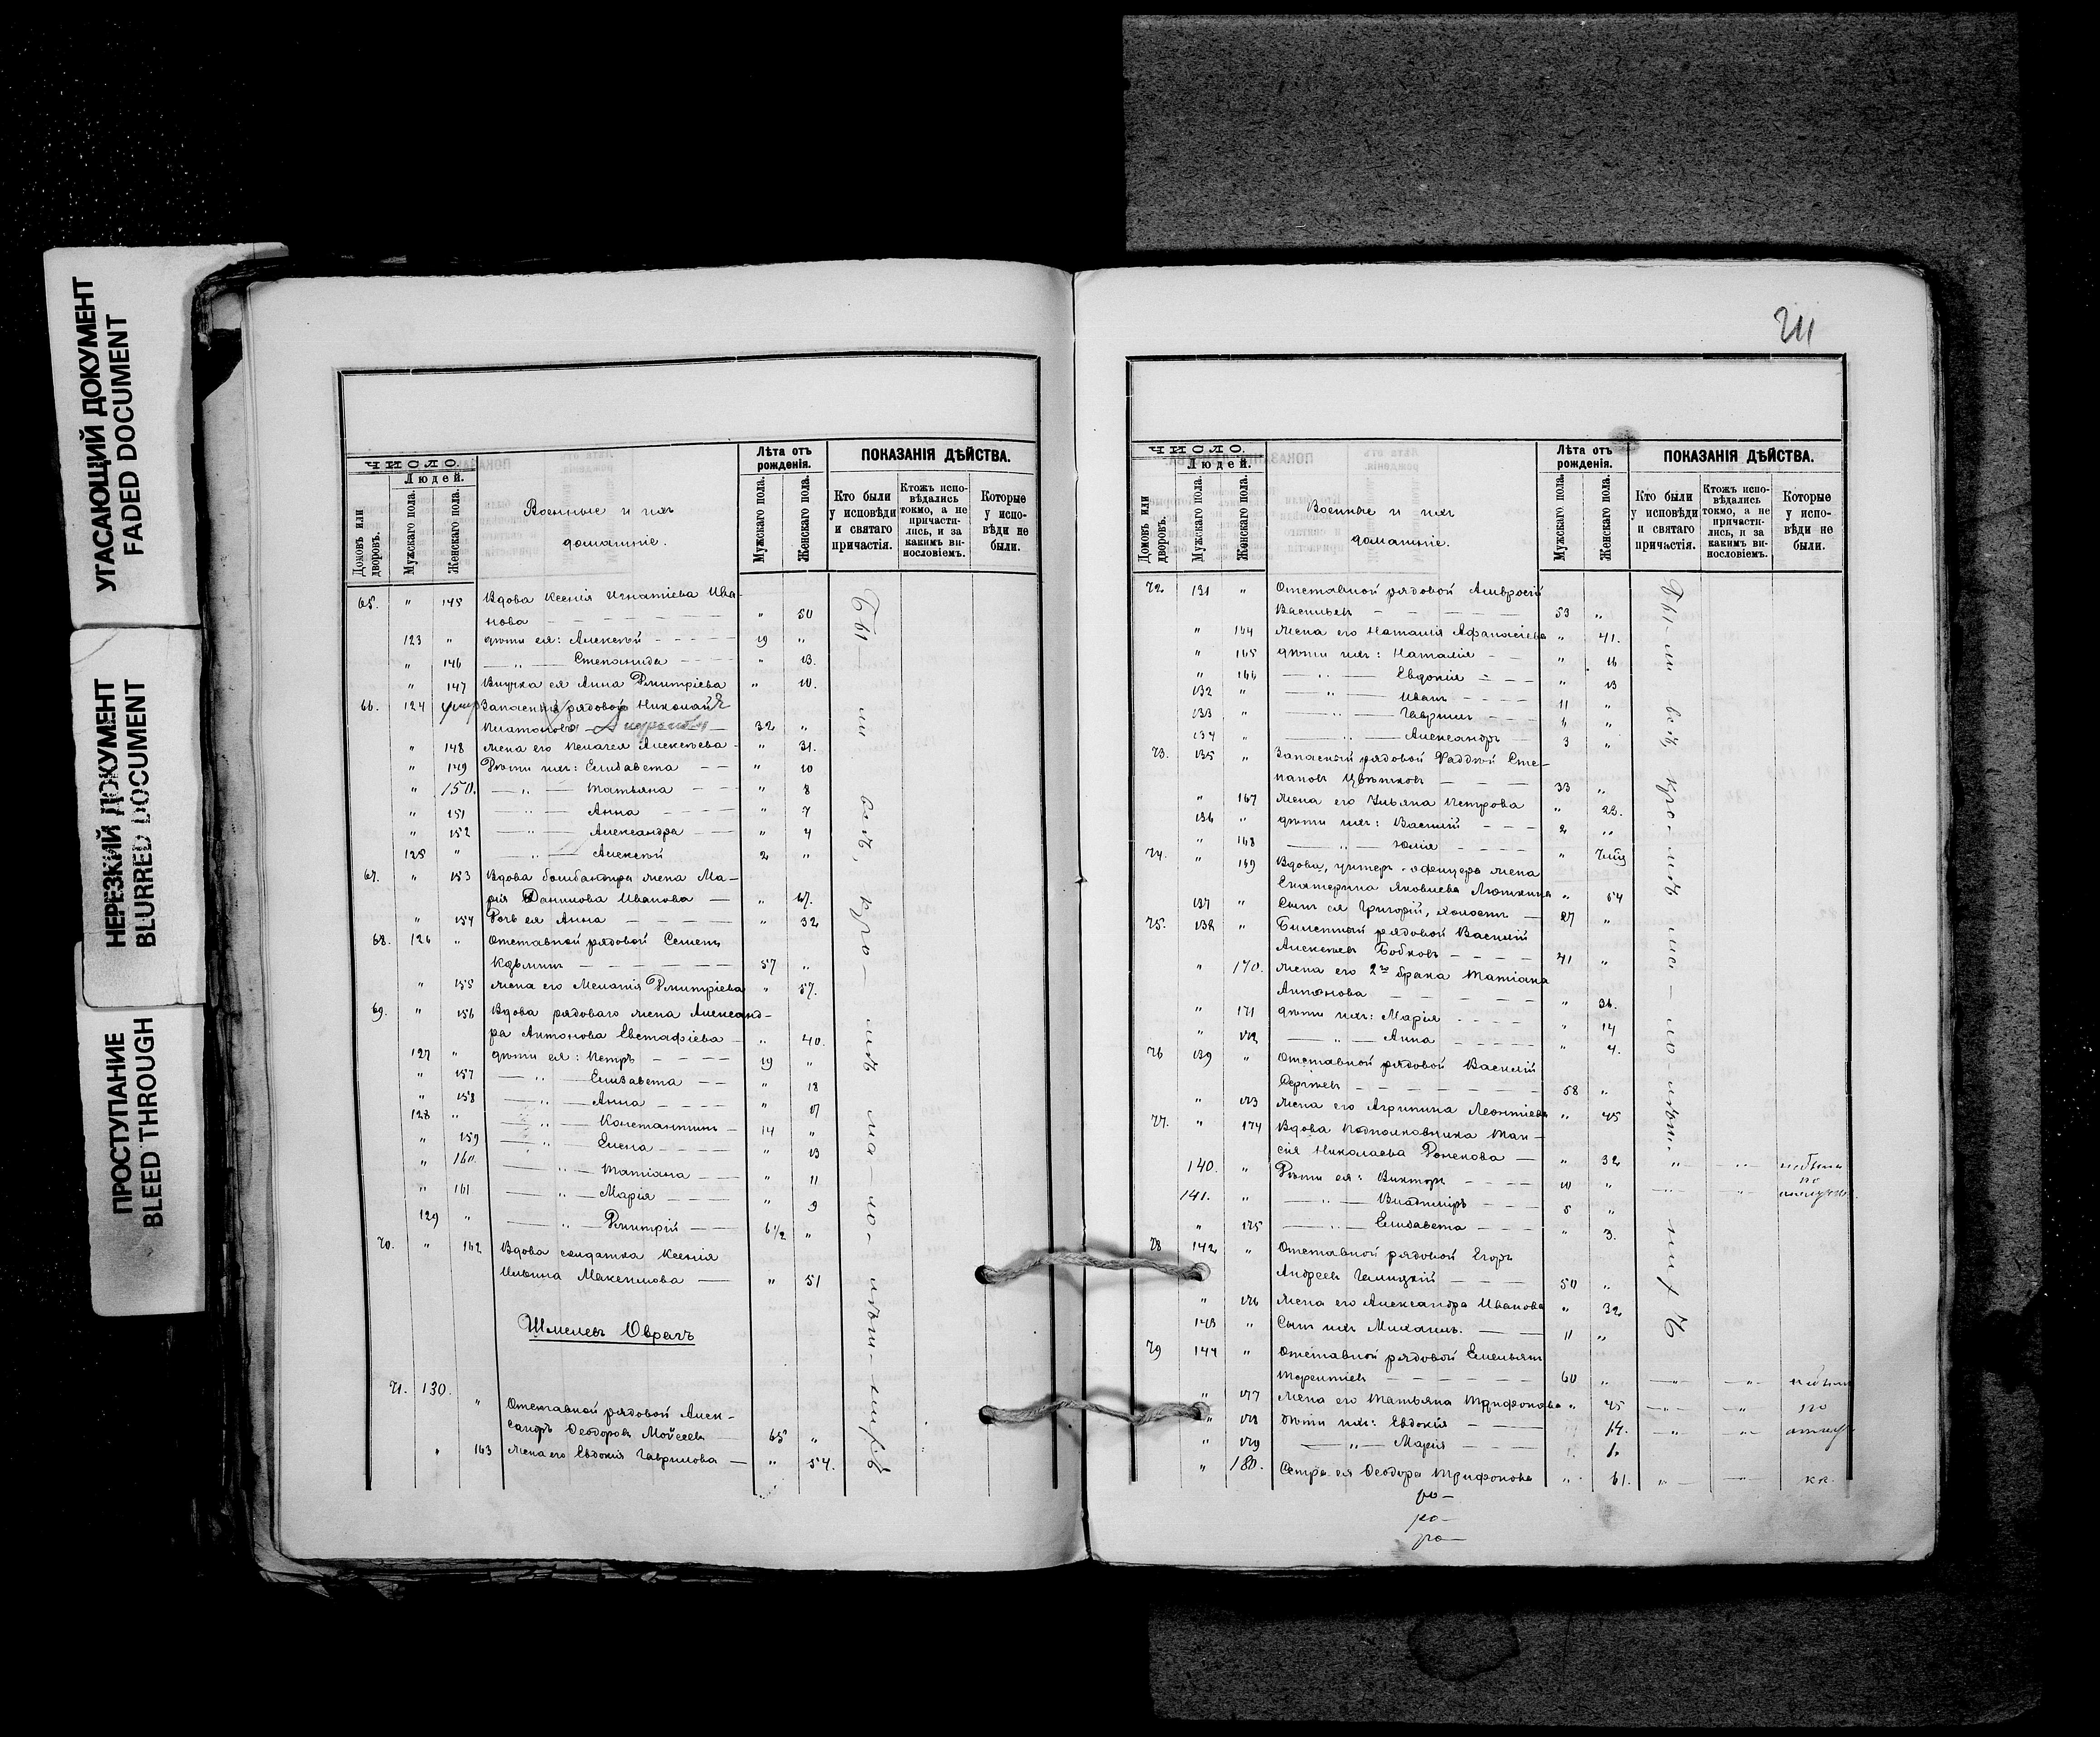 УГАСАЮЩИЙ ДОКУМЕНТ
FADED DOCUMENT
НЕРЕЗКИЙ ДОКУМЕНТ
BLURRED DOCUMENT
ПРОСТУПАНИЕ
BLEED THROUGH
ЧИСЛО.
Людей.
Домовъ или дворовъ.
Мужскаго пола.
Женскаго пола.
Военные и ихъ
домашніе.
Лѣта отъ рожденія.
Мужскаго пола.
Женскаго пола.
ПОКАЗАНІЯ ДѢЙСТВА.
Кто были у исповѣди и святаго причастія.
Ктожъ исповѣдались токмо, а не причастились, и за какимъ винословіемъ.
Которые у исповѣди не были.
65. " 145 Вдова Ксенія Игнатіева Ива-
нова — " 50
123 " дѣти ея: Алексѣй — 19 "
" 146 — " — Степанида — " 13.
" 147 Внучка ея Анна Димитріева " 10.
66. 124 умер Запасный рядовой Николай
Платоновъ — 32 "
" 148 жена его Пелагея Алексѣева — " 31.
" 149 Дѣти ихъ: Елисавета — " 10
" 150. — " — Татьяна — " 8
" 151 — " — Анна — " 7
" 152 — " — Александра — " 4
125 " — " — Алексѣй 2 "
67. " 153 Вдова бомбандира жена Ма-
рія Данилова Иванова — " 67.
" 154 Дочь ея Анна — " 32
68. 126 " Отставной рядовой Семенъ
Кузьминъ — 57 "
" 155 жена его Меланія Димитріева " 57.
69. " 156 Вдова рядоваго жена Александ-
ра Антонова Евстафіева — " 40.
127 " дѣти ея: Петръ — 19 "
" 157 — " — Елисавета — " 18
" 158 — " — Анна — " 17
128 " — " — Константинъ — 14 "
" 159 — " — Елена — " 13
" 160. — " — Татіана — " 11
" 161 — " — Марія — " 9
129 " — " — Димитрій — 6 1/2 "
70. " 162 Вдова солдатка Ксенія
Ильина Максимова — " 51
Шмелевъ Оврагъ
71. 130. " Отставной рядовой Алек-
сандръ Ѳеодоровъ Мойсеевъ — 65 "
" 163 Жена его Евдокія Гаврилова — " 54.
Бы-ли всѣ, кро-мѣ ма-ло-лѣт-нихъ
211
ЧИСЛО.
Людей.
Домовъ или дворовъ.
Мужскаго пола.
Женскаго пола.
Военные и ихъ
домашніе.
Лѣта отъ рожденія.
Мужскаго пола.
Женскаго пола.
ПОКАЗАНІЯ ДѢЙСТВА.
Кто были у исповѣди и святаго причастія.
Ктожъ исповѣдались токмо, а не причастились, и за какимъ винословіемъ.
Которые у исповѣди не были.
72. 131 " Отставной рядовой Амвросій
Васильевъ — 53 "
" 164 Жена его Наталія Афанасіева " 41.
" 165 дѣти ихъ: Наталія — " 16
" 166 — " — Евдокія — " 13
132 " — " — Иванъ — 11 "
133 " — " — Гавріилъ — " "
134 " — " — Александръ — 3 "
73. 135 " Запасный рядовой Фаддей Сте-
пановъ Цвѣтковъ — 33 "
" 167 Жена его Ульяна Петрова " 22.
136 " дѣти ихъ: Василій — 2 "
" 168 — " — Юлія — "
74. " 169 Вдова, унтеръ-офицера жена
Екатерина Яковлева Люткина " 64
137 " Сынъ ея Григорій, холостъ — 27 "
75. 138 " Билетный рядовой Василій
Алексѣевъ Бобковъ — 41 "
" 170. Жена его 2го брака Татіана
Антонова — " 36.
" 171 дѣти ихъ: Марія — " 14
" 172 — " — Анна — " 4.
76 139 " Отставной рядовой Василій
Сергѣевъ — 58 "
" 173 Жена его Агрипина Леонтіева " 45
77. " 174 Вдова Подполковника Таи-
сія Николаева — " 32
140. " Дѣти ея: Викторъ — 10 "
141. " — " — Владиміръ — 5 "
" 175 — " — Елисавета — " 3.
78 142 " Отставной рядовой Егоръ
Андреевъ Галицкій — 50 "
" 176 Жена его Александра Иванова " 32
143 " Сынъ ихъ Михаилъ. — 11 "
79 144 " Отставной рядовой Емельянъ
Терентіевъ 60 "
" 177 Жена его Татьяна Трифонова " 45
" 178 Дѣти ихъ: Евдокія — 14.
" 179 — " — Марія —
" 180. Сестра ея Ѳеодора Трифонова " 61.
Бы-ли всѣ, кро-мѣ ма-ло-лѣт-нихъ
не были
по
не были
по
ро-
ро-
ро-